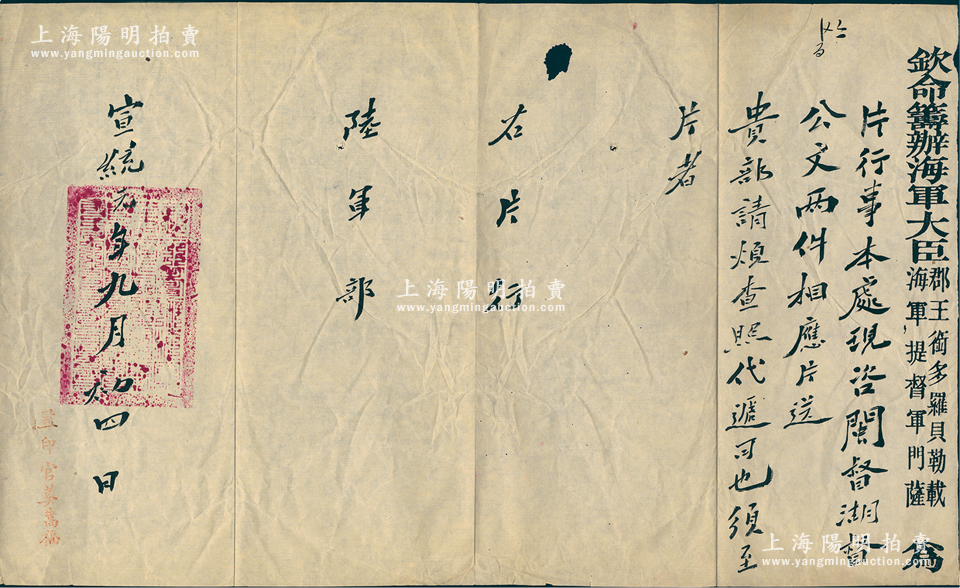 欽命籌辦海軍大臣
郡王銜多羅貝勒載
海軍提督軍門薩
為
片行事本處現咨閩督湖督
公文兩件相應片送
貴部請煩查照代遞可也須至
片者
右片行
陸軍部
宣統元年九月初四日
印官
上海陽明拍賣
www.yangmingauction.com
上海陽明拍賣
www.yangmingauction.com
上海陽明拍賣
www.yangmingauction.com
上海陽明拍賣
www.yangmingauction.com
上海陽明拍賣
www.yangmingauction.com